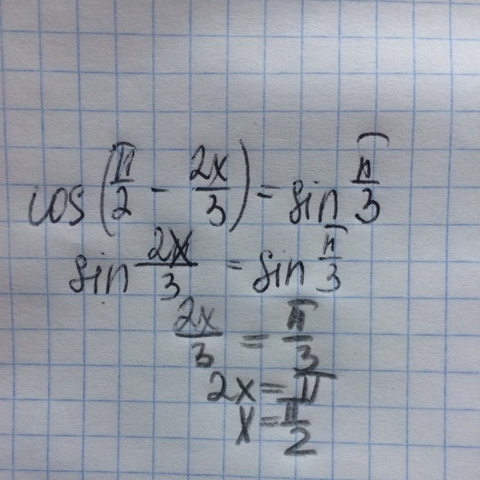 cos(π/2 - 2x/3) = sin π/3
sin 2x/3 = sin π/3
2x/3 = π/3
2x = π
x = π/2